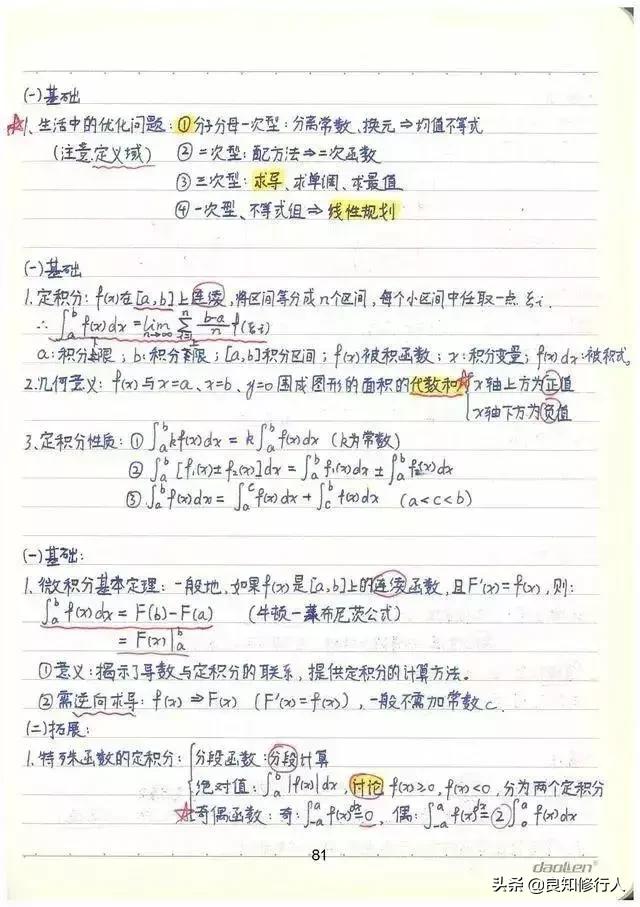 (一)基础
☆1、生活中的优化问题:①分子分母一次型:分离常数、换元⇒均值不等式
(注意定义域) ②二次型:配方法⇒二次函数
③三次型:求导、求单调、求最值
④一次型、不等式组⇒线性规划
(一)基础
1.定积分:f(x)在[a,b]上连续,将区间等分成n个区间,每个小区间中任取一点ξi.
∴∫_a^b f(x)dx=lim_{n→∞} Σ_{i=1}^n (b-a)/n f(ξi)
a:积分下限;b:积分上限;[a,b]积分区间;f(x)被积函数;x:积分变量;f(x)dx:被积式。
2.几何意义:f(x)与x=a、x=b、y=0围成图形的面积的代数和☆{x轴上方为正值
x轴下方为负值
3.定积分性质:①∫_a^b kf(x)dx=k∫_a^b f(x)dx (k为常数)
②∫_a^b [f₁(x)±f₂(x)]dx=∫_a^b f₁(x)dx±∫_a^b f₂(x)dx
③∫_a^b f(x)dx=∫_a^c f(x)dx+∫_c^b f(x)dx (a<c<b)
(一)基础:
1.微积分基本定理:一般地,如果f(x)是[a,b]上的连续函数,且F'(x)=f(x),则:
∫_a^b f(x)dx=F(b)-F(a) (牛顿-莱布尼茨公式)
=F(x)|_a^b
①意义:揭示了导数与定积分的联系,提供定积分的计算方法。
②需逆向求导:f(x)⇒F(x) (F'(x)=f(x)),一般不需加常数c.
(二)拓展:
1.特殊函数的定积分:{分段函数:分段计算
绝对值:∫_a^b |f(x)|dx,讨论f(x)≥0,f(x)<0,分为两个定积分
☆奇偶函数:奇:∫_{-a}^a f(x)dx=0,偶:∫_{-a}^a f(x)dx=2∫_0^a f(x)dx
81
daolen®
头条@良知修行人